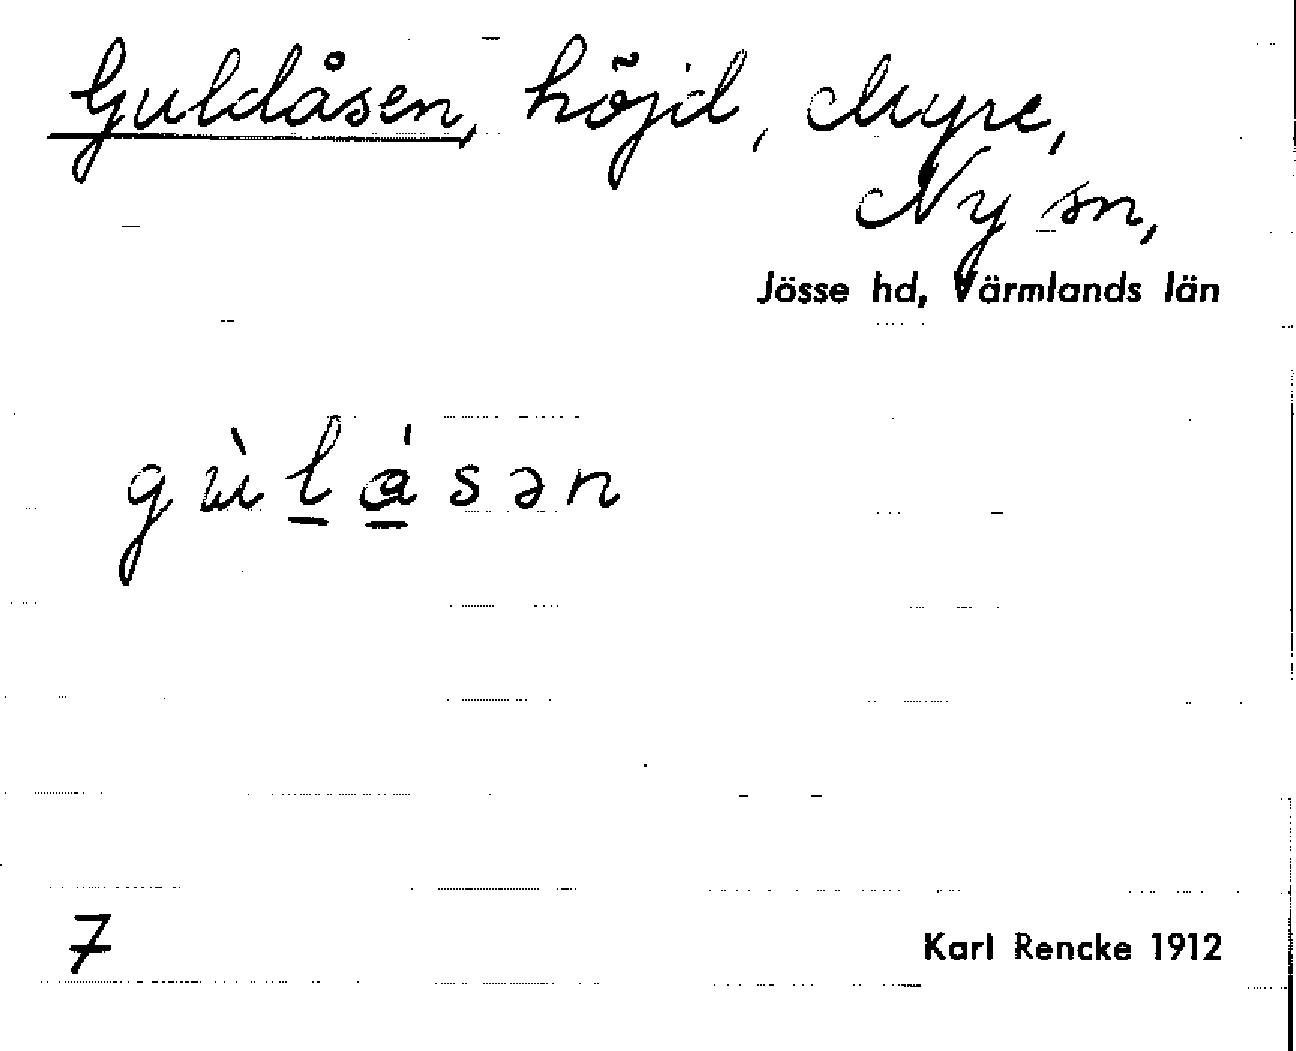 Guldåsen, höjd, Myre,
Ny sn,
Jösse hd, Värmlands län
gùlåsən
7
Karl Rencke 1912